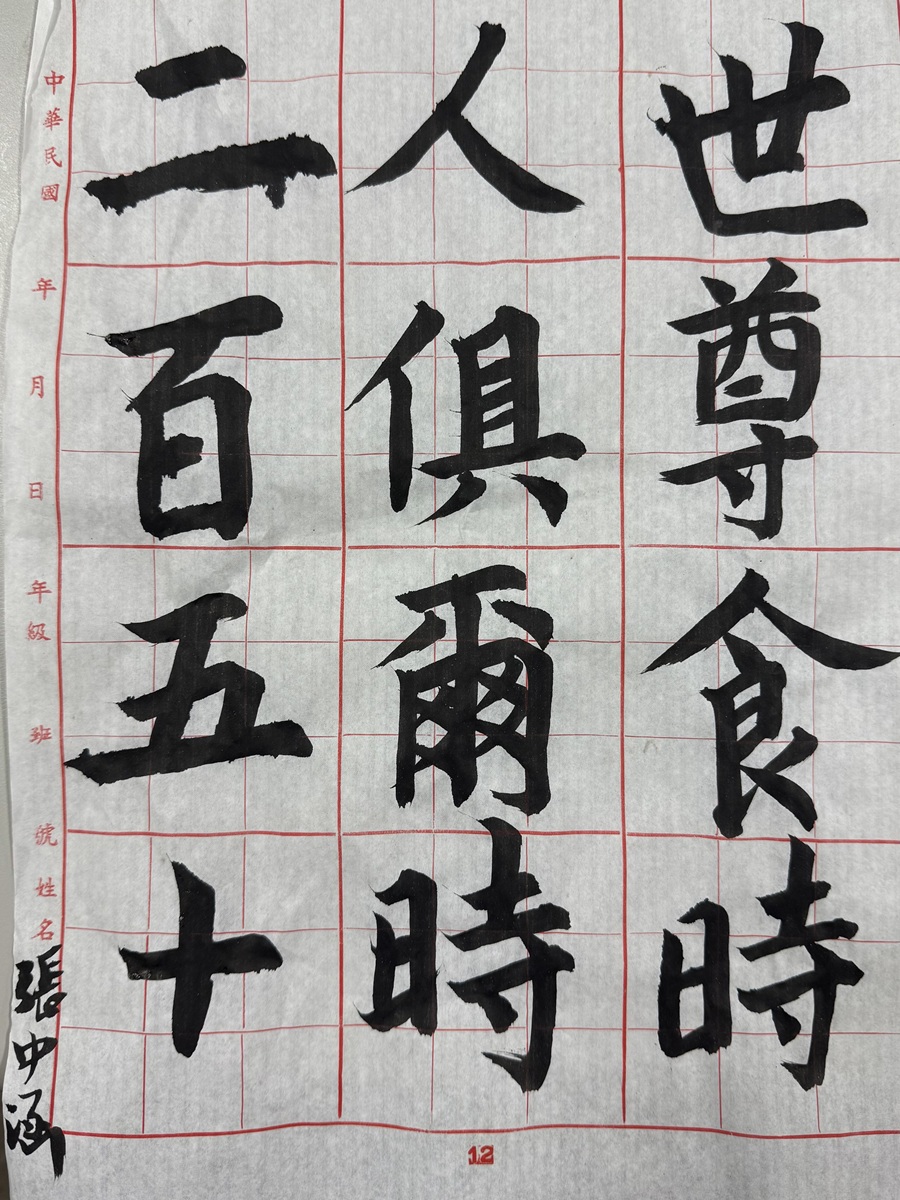 世尊食時
人俱爾時
二百五十
中華民國 年 月 日 年級 班 號姓名張中涵
12